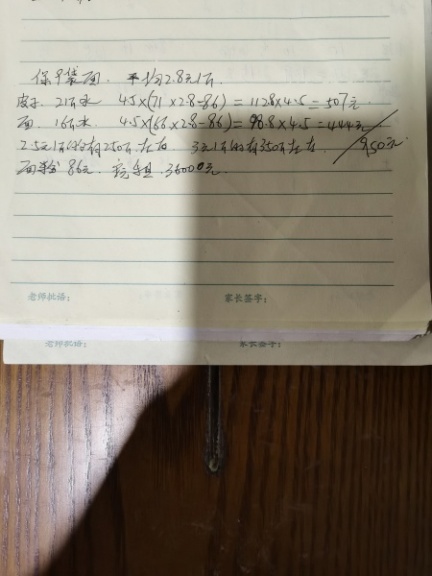 保平袋面. 平均2.8元1斤
皮子. 21斤水 4.5×(71×2.8-86) = 112.8×4.5 = 507元.
面. 16斤水 4.5×(66×2.8-86) = 98.8×4.5 = 444元
950元
2.5元1斤的有250斤左右. 3元1斤的有350斤左右.
面粉 86元. 房租. 36000元.
老师批语: 家长签字:
老师批语: 家长签字: